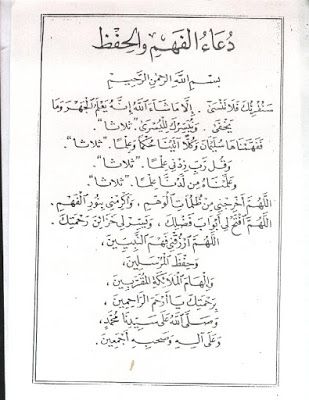 دُعَاءُ الفَهْمِ وَالحِفْظِ
بِسْمِ اللّٰهِ الرَّحْمٰنِ الرَّحِيْمِ
سَنُقْرِئُكَ فَلَا تَنْسَىٰ . إِلَّا مَا شَاءَ اللّٰهُ إِنَّهُ يَعْلَمُ الْجَهْرَ وَمَا
يَخْفَىٰ . وَنُيَسِّرُكَ لِلْيُسْرَىٰ "ثلاثا" .
فَفَهَّمْنَاهَا سُلَيْمَانَ وَكُلًّا آتَيْنَا حُكْمًا وَعِلْمًا . "ثلاثا" .
وَقُلْ رَبِّ زِدْنِي عِلْمًا . "ثلاثا" .
وَعَلَّمْنَاهُ مِنْ لَدُنَّا عِلْمًا . "ثلاثا" .
اَللّٰهُمَّ أَخْرِجْنِي مِنْ ظُلُمَاتِ الْوَهْمِ ، وَأَكْرِمْنِي بِنُورِ الْفَهْمِ .
اَللّٰهُمَّ افْتَحْ لِي أَبْوَابَ فَضْلِكَ ، وَيَسِّرْ لِي خَزَائِنَ رَحْمَتِكَ .
اَللّٰهُمَّ ارْزُقْنِي فَهْمَ النَّبِيِّيْنَ ،
وَحِفْظَ الْمُرْسَلِيْنَ ،
وَإِلْهَامَ الْمَلَائِكَةِ الْمُقَرَّبِيْنَ ،
بِرَحْمَتِكَ يَا أَرْحَمَ الرَّاحِمِيْنَ ،
وَصَلَّى اللّٰهُ عَلَى سَيِّدِنَا مُحَمَّدٍ ،
وَعَلَى آلِهِ وَصَحْبِهِ أَجْمَعِيْنَ .